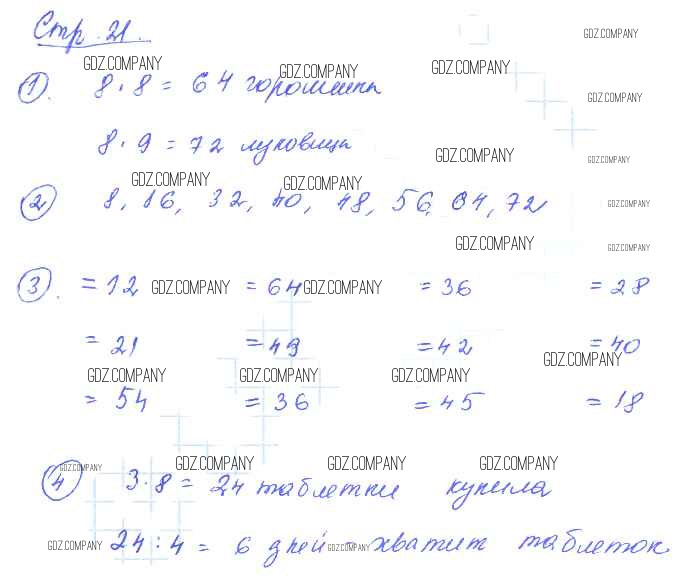 Стр. 21.
GDZ.COMPANY
GDZ.COMPANY GDZ.COMPANY GDZ.COMPANY
1). 8 · 8 = 64 горошина
GDZ.COMPANY
8 · 9 = 72 луковица
GDZ.COMPANY GDZ.COMPANY
GDZ.COMPANY GDZ.COMPANY
2) 8, 16, 32, 40, 48, 56, 64, 72
GDZ.COMPANY
GDZ.COMPANY GDZ.COMPANY
3). = 12 GDZ.COMPANY = 64 GDZ.COMPANY = 36 = 28
= 21 = 49 = 42 = 40
GDZ.COMPANY
GDZ.COMPANY GDZ.COMPANY GDZ.COMPANY
= 54 = 36 = 45 = 18
GDZ.COMPANY GDZ.COMPANY GDZ.COMPANY GDZ.COMPANY
4) 3 · 8 = 24 таблетки купила
GDZ.COMPANY 24 : 4 = 6 дней GDZ.COMPANY - хватит таблеток